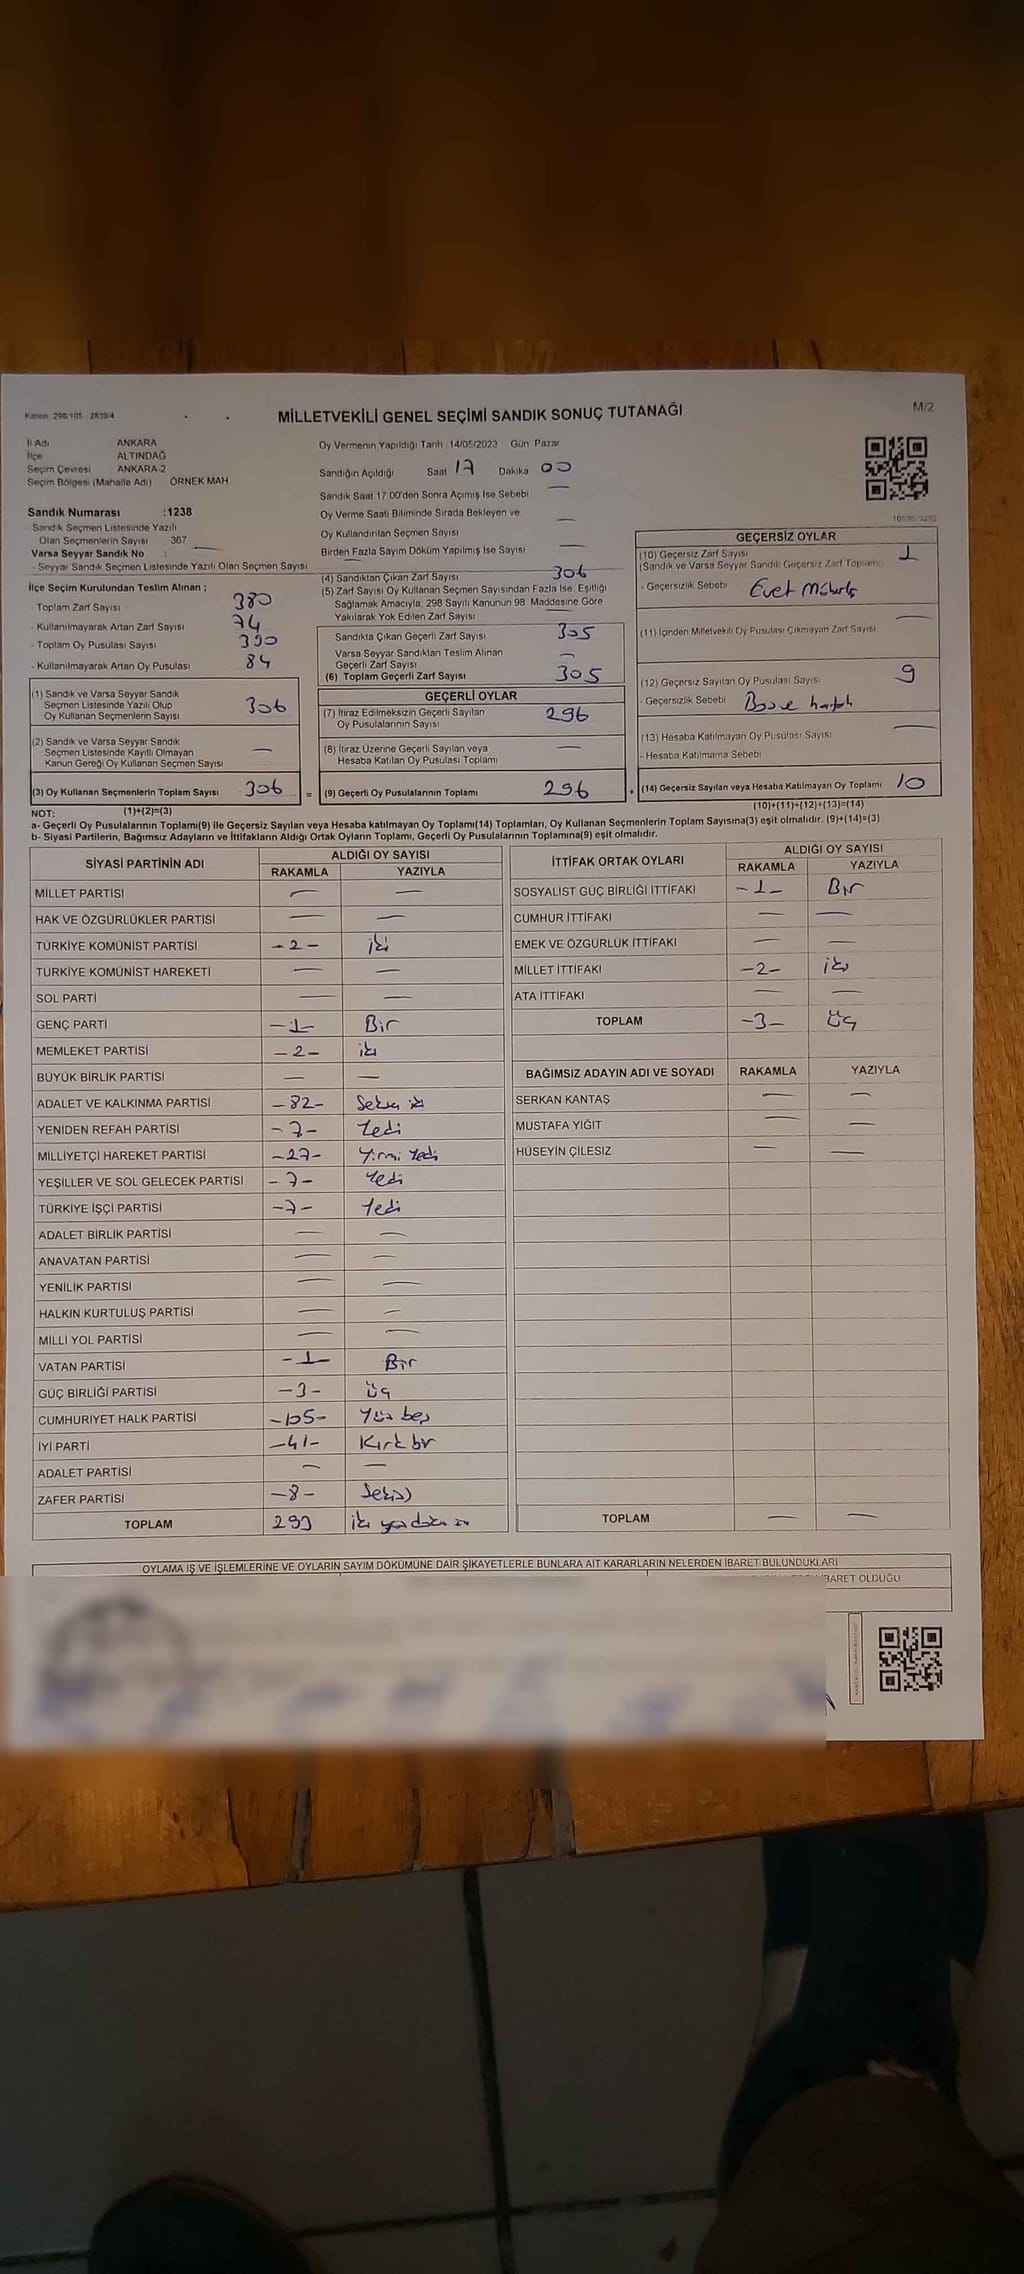 Kanun: 298/105 : 2839/4
MİLLETVEKİLİ GENEL SEÇİMİ SANDIK SONUÇ TUTANAĞI
M/2
İl Adı ANKARA
İlçe ALTINDAĞ
Seçim Çevresi ANKARA-2
Seçim Bölgesi (Mahalle Adı) ÖRNEK MAH
Sandık Numarası :1238
- Sandık Seçmen Listesinde Yazılı
Olan Seçmenlerin Sayısı 367
Varsa Seyyar Sandık No : —
- Seyyar Sandık Seçmen Listesinde Yazılı Olan Seçmen Sayısı —
Oy Vermenin Yapıldığı Tarih 14/05/2023 Gün Pazar
Sandığın Açıldığı Saat 17 Dakika 00
Sandık Saat 17.00'den Sonra Açımış İse Sebebi —
Oy Verme Saati Bitiminde Sırada Bekleyen ve
Oy Kullandırılan Seçmen Sayısı —
Birden Fazla Sayım Döküm Yapılmış İse Sayısı —
İlçe Seçim Kurulundan Teslim Alınan ;
- Toplam Zarf Sayısı 380
- Kullanılmayarak Artan Zarf Sayısı 74
- Toplam Oy Pusulası Sayısı 390
- Kullanılmayarak Artan Oy Pusulası 84
(1) Sandık ve Varsa Seyyar Sandık
Seçmen Listesinde Yazılı Olup
Oy Kullanan Seçmenlerin Sayısı 306
(2) Sandık ve Varsa Seyyar Sandık
Seçmen Listesinde Kayıtlı Olmayan
Kanun Gereği Oy Kullanan Seçmen Sayısı —
(3) Oy Kullanan Seçmenlerin Toplam Sayısı 306
(4) Sandıktan Çıkan Zarf Sayısı 306
(5) Zarf Sayısı Oy Kullanan Seçmen Sayısından Fazla İse, Eşitliği
Sağlamak Amacıyla, 298 Sayılı Kanunun 98. Maddesine Göre
Yakılarak Yok Edilen Zarf Sayısı —
Sandıkta Çıkan Geçerli Zarf Sayısı 305
Varsa Seyyar Sandıktan Teslim Alınan
Geçerli Zarf Sayısı —
(6) Toplam Geçerli Zarf Sayısı 305
GEÇERLİ OYLAR
(7) İtiraz Edilmeksizin Geçerli Sayılan
Oy Pusulalarının Sayısı 296
(8) İtiraz Üzerine Geçerli Sayılan veya
Hesaba Katılan Oy Pusulası Toplamı —
= (9) Geçerli Oy Pusulalarının Toplamı 296 +
GEÇERSİZ OYLAR
(10) Geçersiz Zarf Sayısı 1
(Sandık ve Varsa Seyyar Sandık Geçersiz Zarf Toplamı)
- Geçersizlik Sebebi Evet
(11) İçinden Milletvekili Oy Pusulası Çıkmayan Zarf Sayısı —
(12) Geçersiz Sayılan Oy Pusulası Sayısı 9
- Geçersizlik Sebebi
(13) Hesaba Katılmayan Oy Pusulası Sayısı —
- Hesaba Katılmama Sebebi
(14) Geçersiz Sayılan veya Hesaba Katılmayan Oy Toplamı 10
NOT: (1)+(2)=(3)
(10)+(11)+(12)+(13)=(14)
a- Geçerli Oy Pusulalarının Toplamı(9) ile Geçersiz Sayılan veya Hesaba katılmayan Oy Toplamı(14) Toplamları, Oy Kullanan Seçmenlerin Toplam Sayısına(3) eşit olmalıdır. (9)+(14)=(3)
b- Siyasi Partilerin, Bağımsız Adayların ve İttifakların Aldığı Ortak Oyların Toplamı, Geçerli Oy Pusulalarının Toplamına(9) eşit olmalıdır.
SİYASİ PARTİNİN ADI ALDIĞI OY SAYISI
RAKAMLA YAZIYLA
MİLLET PARTİSİ — —
HAK VE ÖZGÜRLÜKLER PARTİSİ — —
TÜRKİYE KOMÜNİST PARTİSİ -2- iki
TÜRKİYE KOMÜNİST HAREKETİ — —
SOL PARTİ — —
GENÇ PARTİ -1- Bir
MEMLEKET PARTİSİ -2- iki
BÜYÜK BİRLİK PARTİSİ — —
ADALET VE KALKINMA PARTİSİ -82- Seksen iki
YENİDEN REFAH PARTİSİ -7- Yedi
MİLLİYETÇİ HAREKET PARTİSİ -27- Yirmi Yedi
YEŞİLLER VE SOL GELECEK PARTİSİ -7- Yedi
TÜRKİYE İŞÇİ PARTİSİ -7- Yedi
ADALET BİRLİK PARTİSİ — —
ANAVATAN PARTİSİ — —
YENİLİK PARTİSİ — —
HALKIN KURTULUŞ PARTİSİ — —
MİLLİ YOL PARTİSİ — —
VATAN PARTİSİ -1- Bir
GÜÇ BİRLİĞİ PARTİSİ -3- üç
CUMHURİYET HALK PARTİSİ -105- Yüz beş
İYİ PARTİ -41- Kırk bir
ADALET PARTİSİ — —
ZAFER PARTİSİ -8- Sekiz
TOPLAM 293 iki yüz doksan
İTTİFAK ORTAK OYLARI ALDIĞI OY SAYISI
RAKAMLA YAZIYLA
SOSYALİST GÜÇ BİRLİĞİ İTTİFAKI -1- Bir
CUMHUR İTTİFAKI — —
EMEK VE ÖZGÜRLÜK İTTİFAKI — —
MİLLET İTTİFAKI -2- iki
ATA İTTİFAKI — —
TOPLAM -3- üç
BAĞIMSIZ ADAYIN ADI VE SOYADI RAKAMLA YAZIYLA
SERKAN KANTAŞ — —
MUSTAFA YİĞİT — —
HÜSEYİN ÇİLESİZ — —
TOPLAM — —
OYLAMA İŞ VE İŞLEMLERİNE VE OYLARIN SAYIM DÖKÜMÜNE DAİR ŞİKAYETLERLE BUNLARA AİT KARARLARIN NELERDEN İBARET BULUNDUKLARI
İBARET OLDUĞU